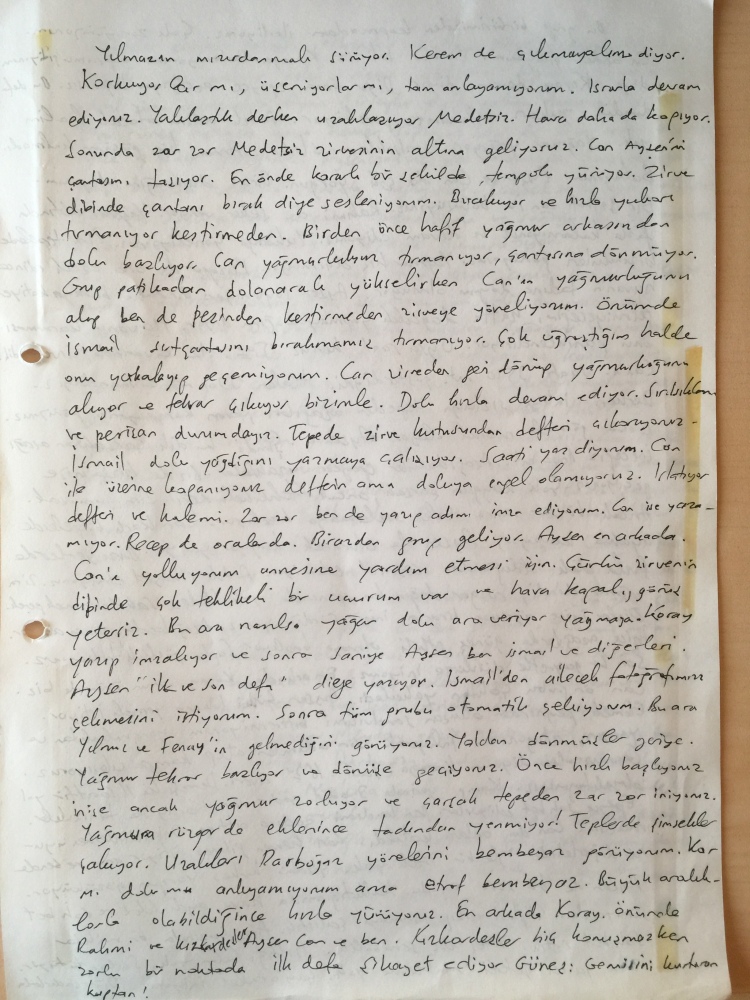 Yılmazın mızırdanmalı sürüyor. Kerem de çıkmayalım diyor.
Korkuyorlar mı, üşeniyorlar mı, tam anlayamıyorum. Israrla devam
ediyoruz. Yaklaştık derken uzaklaşıyor Medetsiz. Hava daha da kapıyor.
Sonunda zar zor Medetsiz zirvesinin altına geliyoruz. Can Ayşenin
çantasını taşıyor. En önde kararlı bir şekilde, tempolu yürüyor. Zirve
dibinde çantanı bırak diye sesleniyorum. Bırakıyor ve hızla yukarı
tırmanıyor kestirmeden. Birden önce hafif yağmur arkasından
dolu başlıyor. Can yağmurluksuz tırmanıyor, çantasına dönmüyor.
Grup patikadan dolanarak yükselirken Can'ın yağmurluğunu
alıp ben de peşinden kestirmeden zirveye yöneliyorum. Önümde
İsmail sırtçantasını bırakmamış tırmanıyor. Çok uğraştığım halde
onu yakalayıp geçemiyorum. Can zirveden geri dönüp yağmurluğunu
alıyor ve tekrar çıkıyor bizimle. Dolu hızla devam ediyor. Sırılsıklam
ve perişan durumdayız. Tepede zirve kutusundan defteri çıkarıyoruz.
İsmail dolu yağdığını yazmaya çalışıyor. Saati yaz diyorum. Can
ile üzerine kapanıyoruz defterin ama doluya engel olamıyoruz. Islatıyor
defteri ve kalemi. Zar zor ben de yazıp adımı imza ediyorum. Can ise yaza-
mıyor. Recep de oralarda. Birazdan grup geliyor. Ayşen en arkada.
Can'ı yolluyorum annesine yardım etmesi için. Çünkü zirvenin
dibinde çok tehlikeli bir uçurum var ve hava kapalı, görüş
yetersiz. Bu ara nasılsa yağan dolu ara veriyor yağmaya. Koray
yazıp imzalıyor ve sonra Saniye Ayşen ben İsmail ve diğerleri.
Ayşen "ilk ve son defa" diye yazıyor. İsmail'den ailecek fotoğrafımızı
çekmesini istiyorum. Sonra tüm grubu otomatik çekiyorum. Bu ara
Yılmaz ve Fenay'ın gelmediğini görüyoruz. Yoldan dönmüşler geriye.
Yağmur tekrar başlıyor ve dönüşe geçiyoruz. Önce hızlı başlıyoruz
inişe ancak yağmur zorluyor ve çarşak tepeden zar zor iniyoruz.
Yağmura rüzgar da eklenince tadından yenmiyor! Tepelerde şimşekler
çakıyor. Uzakları Darboğaz yörelerini bembeyaz görüyorum. Kar
mı dolu mu anlıyamıyorum ama etraf bembeyaz. Büyük aralık-
larla olabildiğince hızla yürüyoruz. En arkada Koray. Önünde
Rahmi ve kızkardeşler Ayşen Can ve ben. Kızkardeşler hiç konuşmazken
zorlu bir noktada ilk defa şikayet ediyor Güneş: Gemisini kurtaran
kaptan!